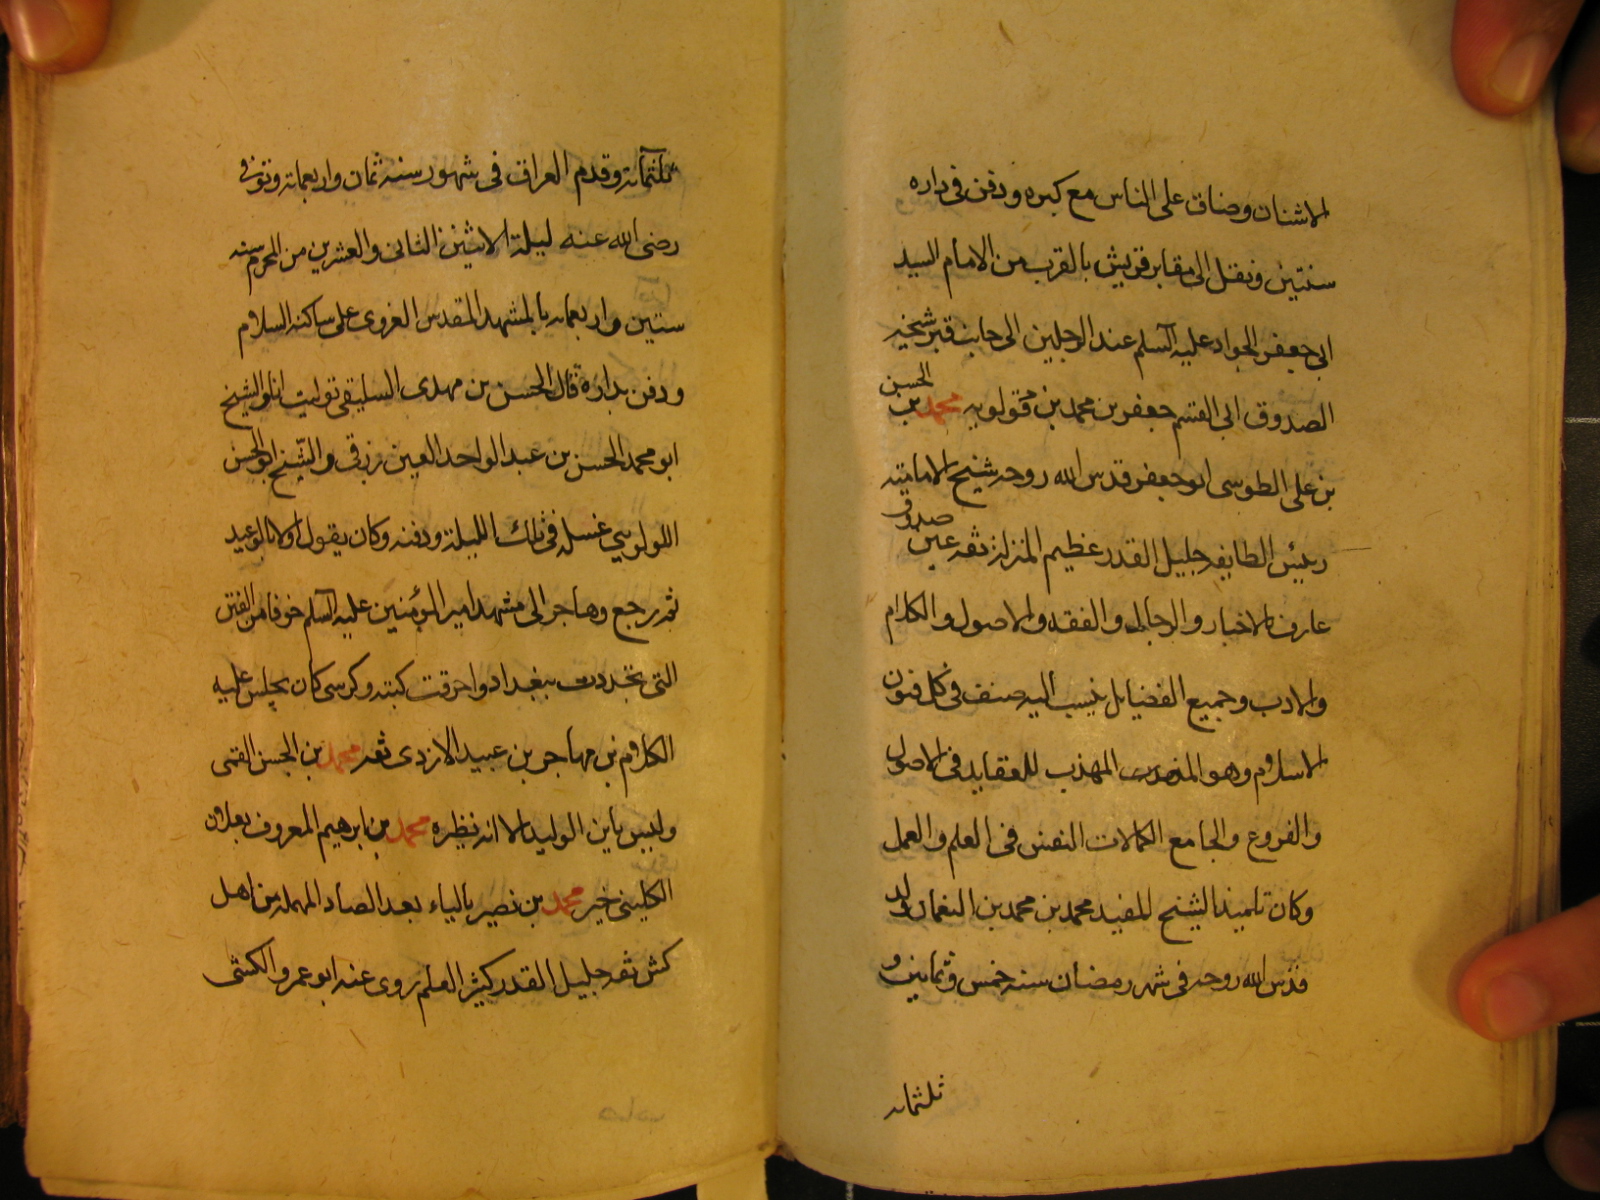 الاشنان وضاق على الناس مع كبره ودفن فى داره
سنتين ونقل الى مقابر قريش بالقرب من الامام السيد
ابى جعفر الجواد عليه السلم عند الرجلين الى جانب قبر شيخه
الصدوق ابى القسم جعفر بن محمد بن قولويه محمد بن الحسن
بن على الطوسى ابو جعفر قدس الله روحه شيخ الامامية
رئيس الطايفه جليل القدر عظيم المنزلة ثقه عين صدوق
عارف بالاخبار والرجال والفقه والاصول والكلام
والادب وجميع الفضايل ينسب اليه صنف فى كل فنون
الاسلام وهو المهذب للعقايد فى الاصول
والفروع والجامع الكمالات النفس فى العلم والعمل
وكان تلميذ الشيخ المفيد محمد بن محمد بن النعمان ولد
قدس الله روحه فى شهر رمضان سنه خمس وثمانين و
ثلثمائه
ثلثمائة وقدم العراق فى شهور سنه ثمان واربعمائة وتوفى
رضى الله عنه ليلة الاثنين الثانى والعشرين من المحرم سنه
ستين واربعمائه بالمشهد المقدس الغروى على ساكنه السلام
ودفن بداره قال الحسن بن مهدى السليقى توليت انا والشيخ
ابو محمد الحسن بن عبد الواحد العين زربى والشيخ ابو الحسن
اللولوى غسله فى تلك الليلة ودفنه وكان يقول اولا بالوعيد
ثم رجع وهاجر الى مشهد امير المؤمنين عليه السلم خوفا من الفتن
التى تجددت ببغداد واحرقت كتبه وكرسى كان يجلس عليه
الكلام بن مهاجر بن عبيد الازدى ثقه محمد بن الحسن القمى
وليس بابن الوليد الا انه نظيره محمد بن ابرهيم المعروف بعلان
الكلينى خير محمد بن نصير بالياء بعد الصاد المهمله من اهل
كش ثقه جليل القدر كثير العلم روى عنه ابو عمرو الكشى